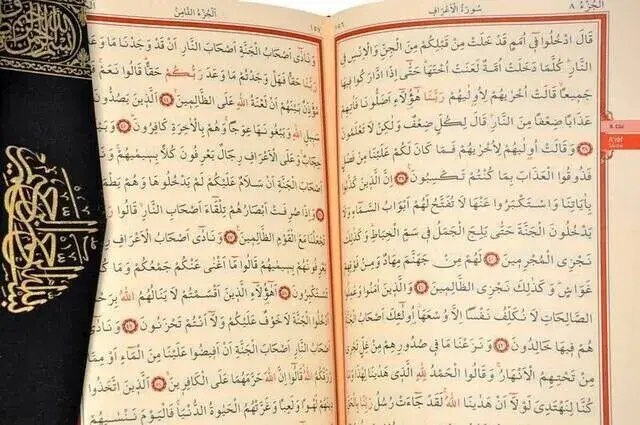 اَلْجُزْءُ ٨ سُورَةُ الْاَعْرَافِ ١٥٦
قَالَ ادْخُلُوا فٓي اُمَمٍ قَدْ خَلَتْ مِنْ قَبْلِكُمْ مِنَ الْجِنِّ وَالْاِنْسِ فِي
النَّارِ كُلَّمَا دَخَلَتْ اُمَّةٌ لَعَنَتْ اُخْتَهَا حَتّٰٓى اِذَا ادَّارَكُوا فٖيهَا
جَمٖيعاً قَالَتْ اُخْرٰيهُمْ لِاُو۫لٰيهُمْ رَبَّنَا هٰٓؤُ۬لَٓاءِ اَضَلُّونَا فَاٰتِهِمْ
عَذَاباً ضِعْفاً مِنَ النَّارِ قَالَ لِكُلٍّ ضِعْفٌ وَلٰكِنْ لَا تَعْلَمُونَ
٣٨ وَقَالَتْ اُو۫لٰيهُمْ لِاُخْرٰيهُمْ فَمَا كَانَ لَكُمْ عَلَيْنَا مِنْ فَضْلٍ
فَذُوقُوا الْعَذَابَ بِمَا كُنْتُمْ تَكْسِبُونَ ٣٩ اِنَّ الَّذٖينَ كَذَّبُوا
بِاٰيَاتِنَا وَاسْتَكْبَرُوا عَنْهَا لَا تُفَتَّحُ لَهُمْ اَبْوَابُ السَّمَٓاءِ وَلَا
يَدْخُلُونَ الْجَنَّةَ حَتّٰى يَلِجَ الْجَمَلُ فٖي سَمِّ الْخِيَاطِ وَكَذٰلِكَ
نَجْزِي الْمُجْرِمٖينَ ٤٠ لَهُمْ مِنْ جَهَنَّمَ مِهَادٌ وَمِنْ فَوْقِهِمْ
غَوَاشٍ وَكَذٰلِكَ نَجْزِي الظَّالِمٖينَ ٤١ وَالَّذٖينَ اٰمَنُوا وَعَمِلُوا
الصَّالِحَاتِ لَا نُكَلِّفُ نَفْساً اِلَّا وُسْعَهَا اُو۬لٰٓئِكَ اَصْحَابُ الْجَنَّةِ
هُمْ فٖيهَا خَالِدُونَ ٤٢ وَنَزَعْنَا مَا فٖي صُدُورِهِمْ مِنْ غِلٍّ تَجْرٖي
مِنْ تَحْتِهِمُ الْاَنْهَارُ وَقَالُوا الْحَمْدُ لِلّٰهِ الَّذٖي هَدٰينَا لِهٰذَا وَمَا
كُنَّا لِنَهْتَدِيَ لَوْلَٓا اَنْ هَدٰينَا اللّٰهُ لَقَدْ جَٓاءَتْ رُسُلُ رَبِّنَا بِالْحَقِّ
8. Cüz
A'râf
Sûresi
١٥٧ اَلْجُزْءُ الثَّامِنُ
وَنَادٰٓى اَصْحَابُ الْجَنَّةِ اَصْحَابَ النَّارِ اَنْ قَدْ وَجَدْنَا مَا وَعَدَنَا
رَبُّنَا حَقاًّ فَهَلْ وَجَدْتُمْ مَا وَعَدَ رَبُّكُمْ حَقاًّ قَالُوا نَعَمْ
مُؤَذِّنٌ بَيْنَهُمْ اَنْ لَعْنَةُ اللّٰهِ عَلَى الظَّالِمٖينَ ٤٤ اَلَّذٖينَ يَصُدُّونَ
سَبٖيلِ اللّٰهِ وَيَبْغُونَهَا عِوَجاً وَهُمْ بِالْاٰخِرَةِ كَافِرُونَ ٤٥ وَبَيْنَهُمَا
حِجَابٌ وَعَلَى الْاَعْرَافِ رِجَالٌ يَعْرِفُونَ كُلًّا بِسٖيمٰيهُمْ وَنَادَوْا
اَصْحَابَ الْجَنَّةِ اَنْ سَلَامٌ عَلَيْكُمْ لَمْ يَدْخُلُوهَا وَهُمْ يَطْمَعُونَ
٤٦ وَاِذَا صُرِفَتْ اَبْصَارُهُمْ تِلْقَٓاءَ اَصْحَابِ النَّارِ قَالُوا رَبَّنَا
تَجْعَلْنَا مَعَ الْقَوْمِ الظَّالِمٖينَ ٤٧ وَنَادٰٓى اَصْحَابُ الْاَعْرَافِ رِجَالاً
يَعْرِفُونَهُمْ بِسٖيمٰيهُمْ قَالُوا مَٓا اَغْنٰى عَنْكُمْ جَمْعُكُمْ وَمَا كُنْتُمْ
تَسْتَكْبِرُونَ ٤٨ اَهٰٓؤُ۬لَٓاءِ الَّذٖينَ اَقْسَمْتُمْ لَا يَنَالُهُمُ اللّٰهُ بِرَحْمَةٍ
اُدْخُلُوا الْجَنَّةَ لَا خَوْفٌ عَلَيْكُمْ وَلَٓا اَنْتُمْ تَحْزَنُونَ ٤٩ وَنَادٰٓى
اَصْحَابُ النَّارِ اَصْحَابَ الْجَنَّةِ اَنْ اَفٖيضُوا عَلَيْنَا مِنَ الْمَٓاءِ اَوْ مِمَّا
رَزَقَكُمُ اللّٰهُ قَالُٓوا اِنَّ اللّٰهَ حَرَّمَهُمَا عَلَى الْكَافِرٖينَ ٥٠ اَلَّذٖينَ اتَّخَذُوا
دٖينَهُمْ لَهْواً وَلَعِباً وَغَرَّتْهُمُ الْحَيٰوةُ الدُّنْيَا فَالْيَوْمَ نَنْسٰيهُمْ